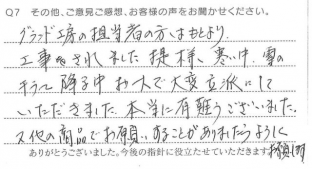 Q7 その他、ご意見ご感想、お客様の声をお聞かせください。
グランド工房の担当者の方はもとより、
工事をされました堤様、寒い中、雪の
チラつく降る中お一人で大変立派にして
いただきました。本当に有難うございました。
又他の商品でお願いすることがありましたらよろしく
お願い
ありがとうございました。今後の指針に役立たせていただきます。